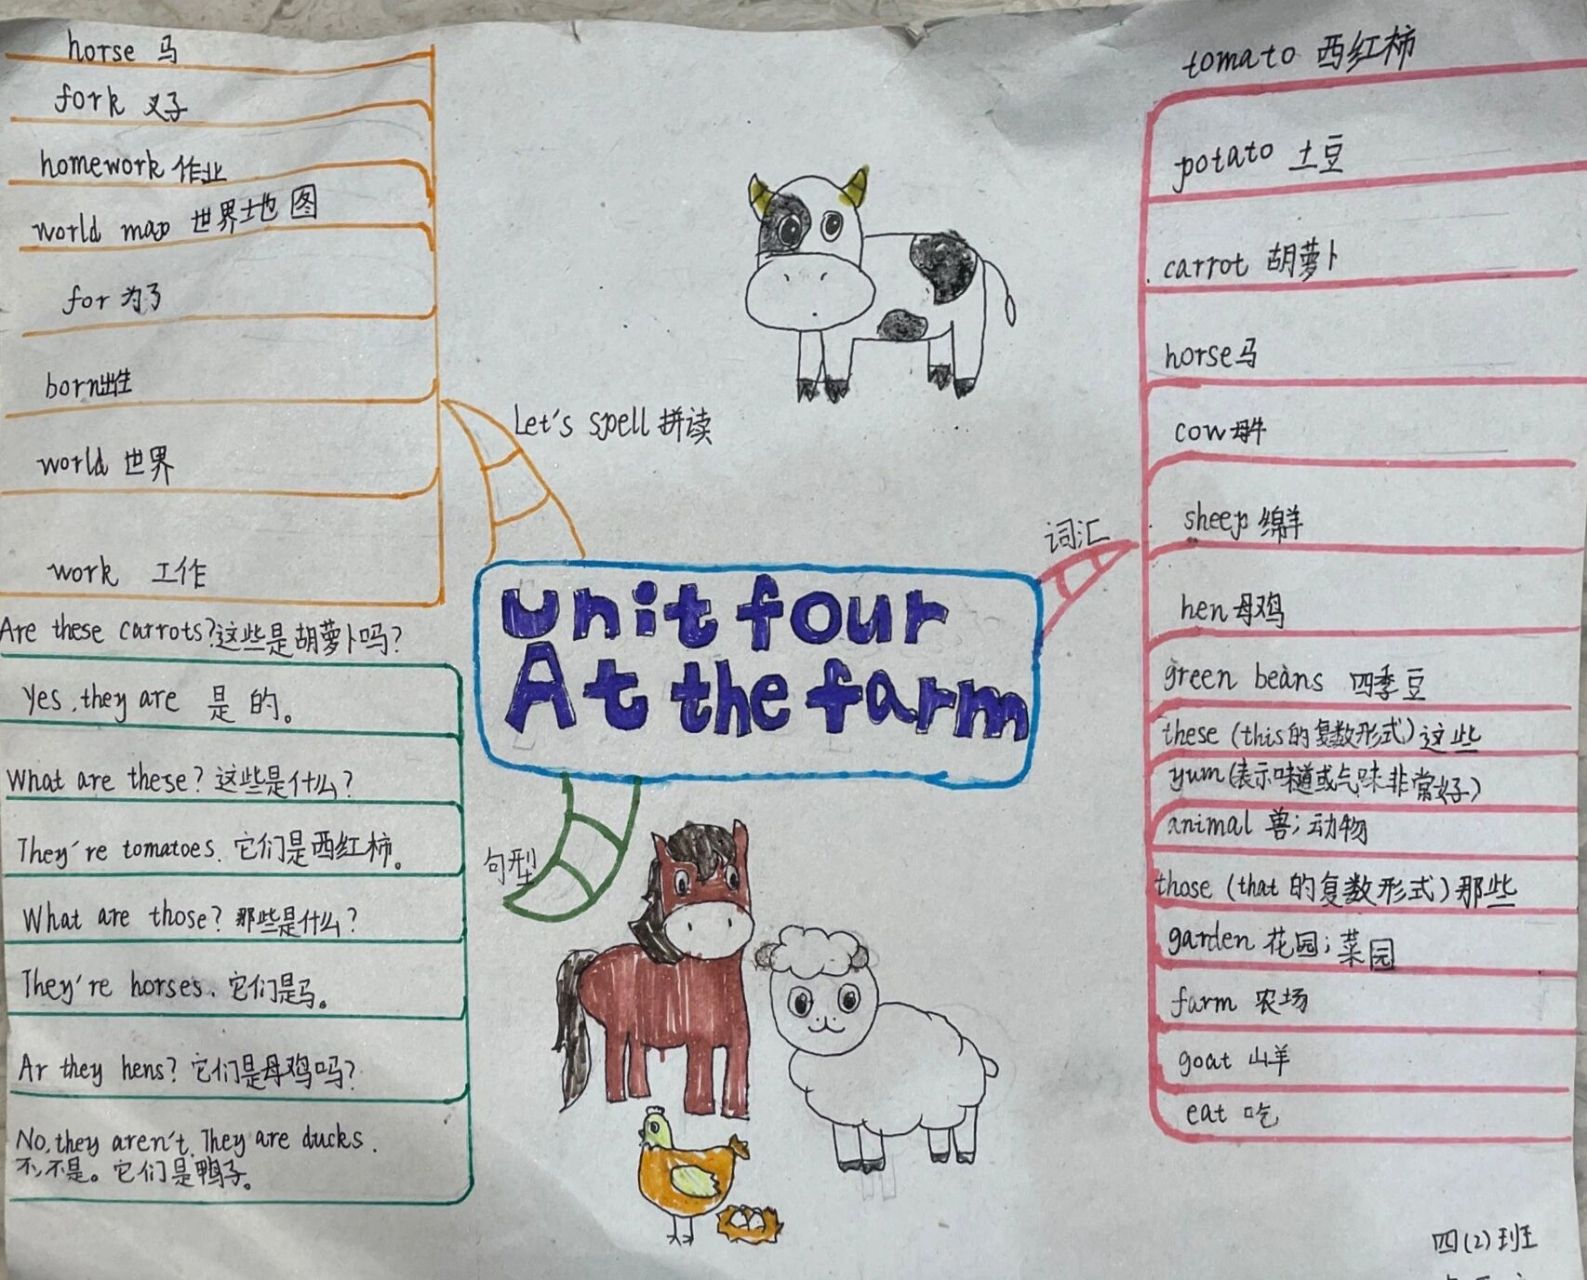 horse 马
fork 叉子
homework 作业
world map 世界地图
for 为了
born出生
world 世界
work 工作
Let's spell 拼读
Are these carrots?这些是胡萝卜吗?
Yes,they are 是的。
What are these? 这些是什么?
They're tomatoes. 它们是西红柿。
What are those? 那些是什么?
They're horses. 它们是马。
Ar they hens? 它们是母鸡吗?
No,they aren't. They are ducks.
不,不是。它们是鸭子。
句型
Unit four
At the farm
词汇
tomato 西红柿
potato 土豆
carrot 胡萝卜
horse马
cow 母牛
sheep 绵羊
hen 母鸡
green beans 四季豆
these (this的复数形式)这些
yum(表示味道或气味非常好)
animal 兽;动物
those (that的复数形式)那些
garden 花园;菜园
farm 农场
goat 山羊
eat 吃
四(2)班